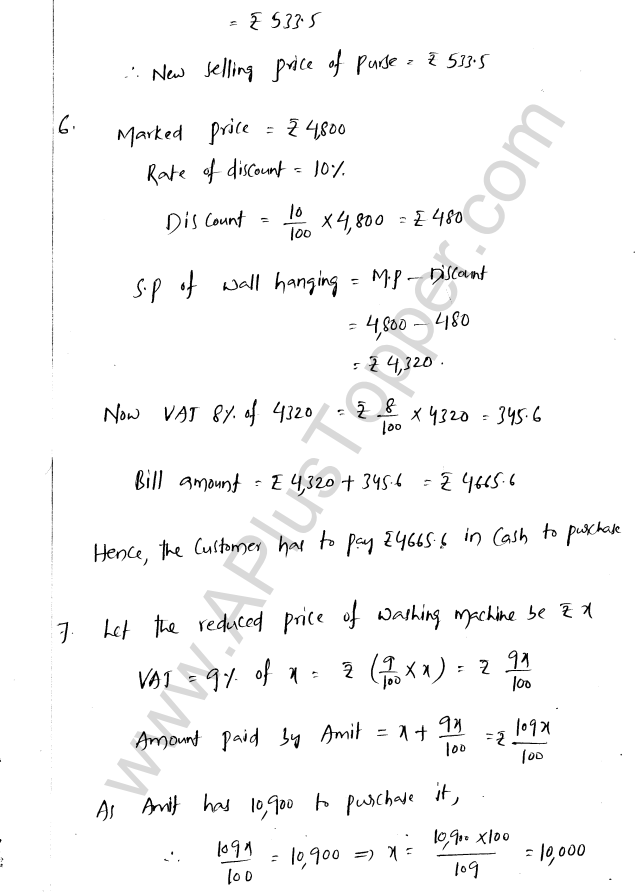 = ₹ 533.5
∴ New selling price of Purse = ₹ 533.5
6. Marked price = ₹ 4,800
Rate of discount = 10%
Discount = 10/100 × 4,800 = ₹ 480
S.P of wall hanging = M.P – Discount
= 4,800 – 480
= ₹ 4,320.
Now VAT 8% of 4320 = ₹ 8/100 × 4320 = 345.6
Bill amount = ₹ 4,320 + 345.6 = ₹ 4665.6
Hence, the Customer has to pay ₹4665.6 in Cash to purchase
7. Let the reduced price of washing machine be ₹ x
VAT = 9% of x = ₹ (9/100 × x) = ₹ 9x/100
Amount paid by Amit = x + 9x/100 = ₹ 109x/100
As Amit has 10,900 to purchase it,
∴ 109x/100 = 10,900 => x = 10,900 × 100/109 = 10,000
www.APlusTopper.com